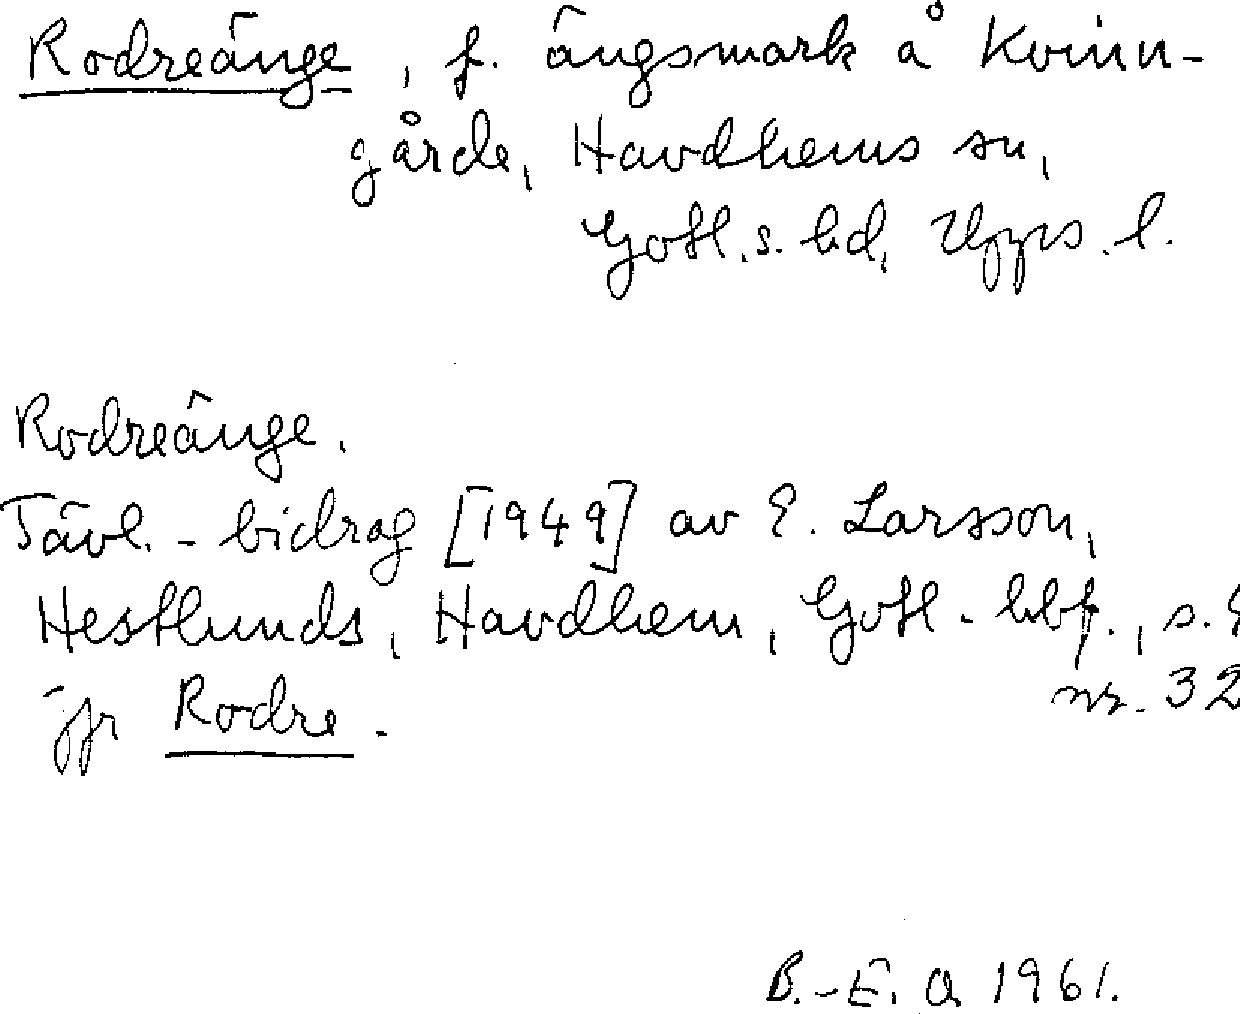 Rodreänge, f. ängsmark å Kvinn-
gårde, Havdhems sn,
Gotl. s. hd, Upps. l.
Rodreänge.
Tävl.-bidrag [1949] av E. Larsson,
Hestlunds, Havdhem, Gotl. hbf., s.
nr. 32
jfr Rodre.
B.-E. O 1961.